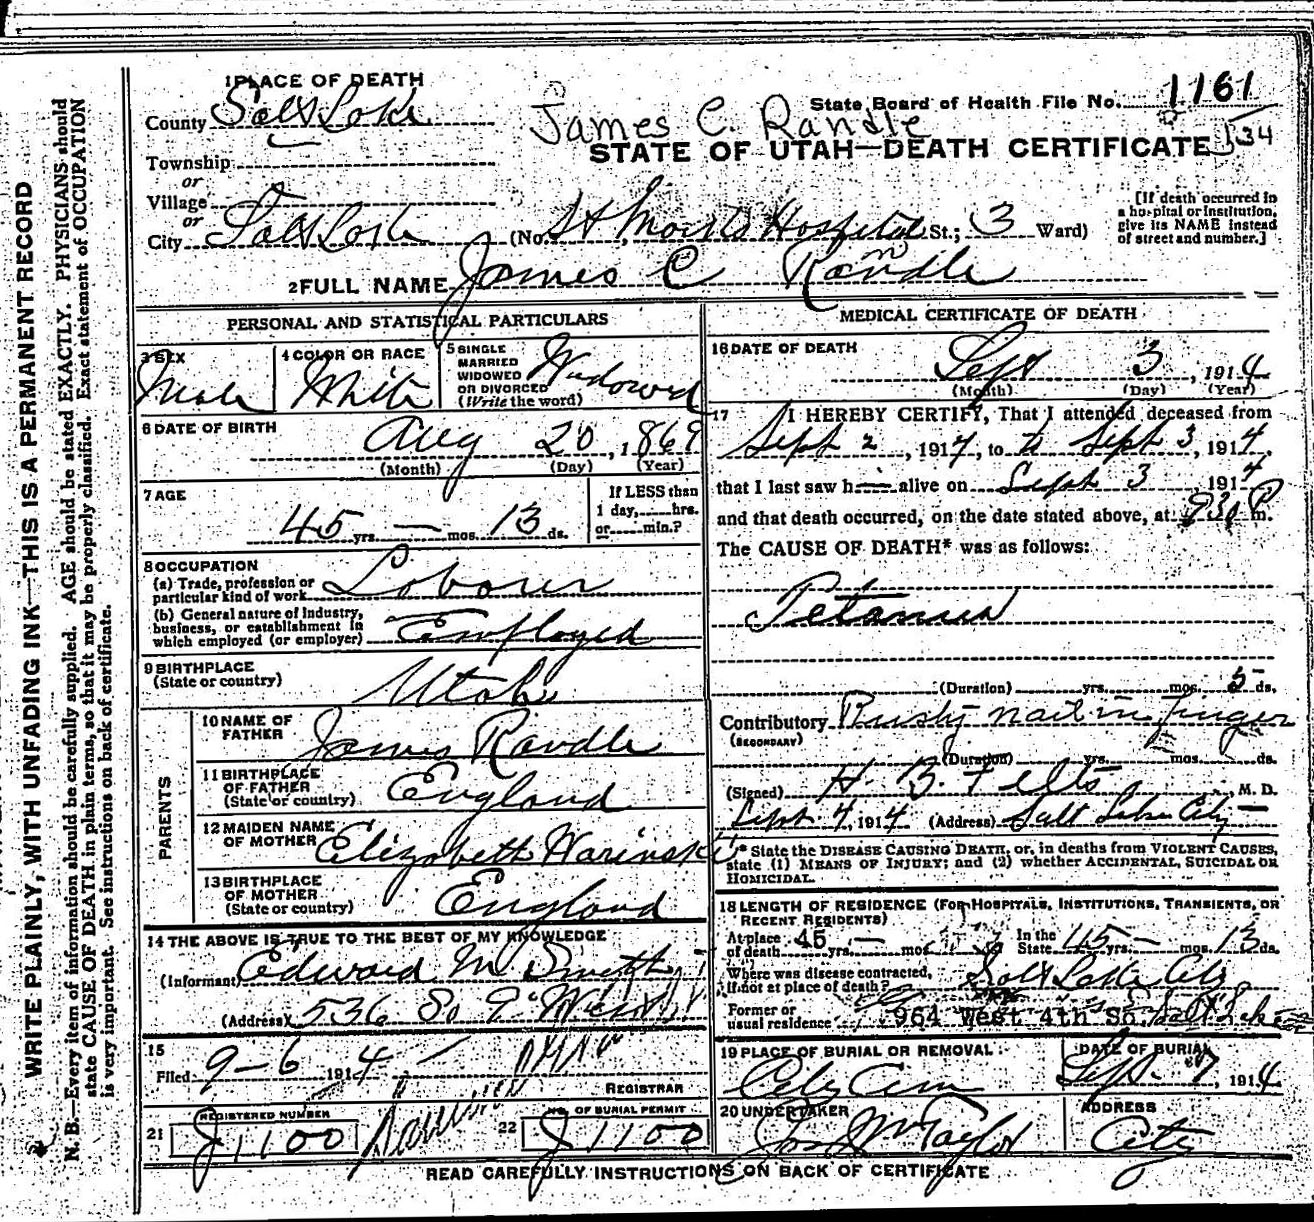 1 PLACE OF DEATH
County Salt Lake
James C. Randle
State Board of Health File No. 1161
534
STATE OF UTAH—DEATH CERTIFICATE
Township
or
Village
or
City Salt Lake (No. St Marks Hospital St.; 3 Ward)
[If death occurred in a hospital or institution, give its NAME instead of street and number.]
2 FULL NAME James C Randle
WRITE PLAINLY, WITH UNFADING INK—THIS IS A PERMANENT RECORD
N. B.—Every item of information should be carefully supplied. AGE should be stated EXACTLY. PHYSICIANS should
state CAUSE OF DEATH in plain terms, so that it may be properly classified. Exact statement of OCCUPATION
is very important. See instructions on back of certificate.
PERSONAL AND STATISTICAL PARTICULARS
3 SEX
Male
4 COLOR OR RACE
White
5 SINGLE
MARRIED
WIDOWED
OR DIVORCED
(Write the word)
Widowed
6 DATE OF BIRTH
Aug 20, 1869
(Month) (Day) (Year)
7 AGE
45 yrs. — mos. 13 ds.
If LESS than
1 day, hrs.
or min.?
8 OCCUPATION
(a) Trade, profession or
particular kind of work Laborer
(b) General nature of industry,
business, or establishment in
which employed (or employer) Employed
9 BIRTHPLACE
(State or country) Utah
PARENTS
10 NAME OF
FATHER James Randle
11 BIRTHPLACE
OF FATHER
(State or country) England
12 MAIDEN NAME
OF MOTHER Elizabeth
13 BIRTHPLACE
OF MOTHER
(State or country) England
14 THE ABOVE IS TRUE TO THE BEST OF MY KNOWLEDGE
(Informant) Edward M Smith
(Address) 536 So 9
15
Filed 9-6 1914
REGISTRAR
21 REGISTERED NUMBER
J 1100
22 NO. OF BURIAL PERMIT
J 1100
MEDICAL CERTIFICATE OF DEATH
16 DATE OF DEATH
Sept 3, 1914
(Month) (Day) (Year)
17 I HEREBY CERTIFY, That I attended deceased from
Sept 2, 1914, to Sept 3, 1914,
that I last saw h— alive on Sept 3 1914
and that death occurred, on the date stated above, at 930 P m.
The CAUSE OF DEATH* was as follows:
Tetanus
(Duration) yrs. mos. 5 ds.
Contributory Rusty nail in finger
(SECONDARY)
(Duration) yrs. mos. ds.
(Signed) H. B. Felts, M. D.
Sept 4, 1914 (Address) Salt Lake City
* State the DISEASE CAUSING DEATH, or, in deaths from VIOLENT CAUSES,
state (1) MEANS OF INJURY; and (2) whether ACCIDENTAL, SUICIDAL OR
HOMICIDAL.
18 LENGTH OF RESIDENCE (FOR HOSPITALS, INSTITUTIONS, TRANSIENTS, OR
RECENT RESIDENTS)
At place of death 45 yrs. — mos. In the State 45 yrs. — mos. 13 ds.
Where was disease contracted,
if not at place of death? Salt Lake City
Former or
usual residence 964 West 4th So. Salt Lake
19 PLACE OF BURIAL OR REMOVAL
City Cem
DATE OF BURIAL
Sept. 7, 1914
20 UNDERTAKER
Jos Wm Taylor
ADDRESS
City
READ CAREFULLY INSTRUCTIONS ON BACK OF CERTIFICATE